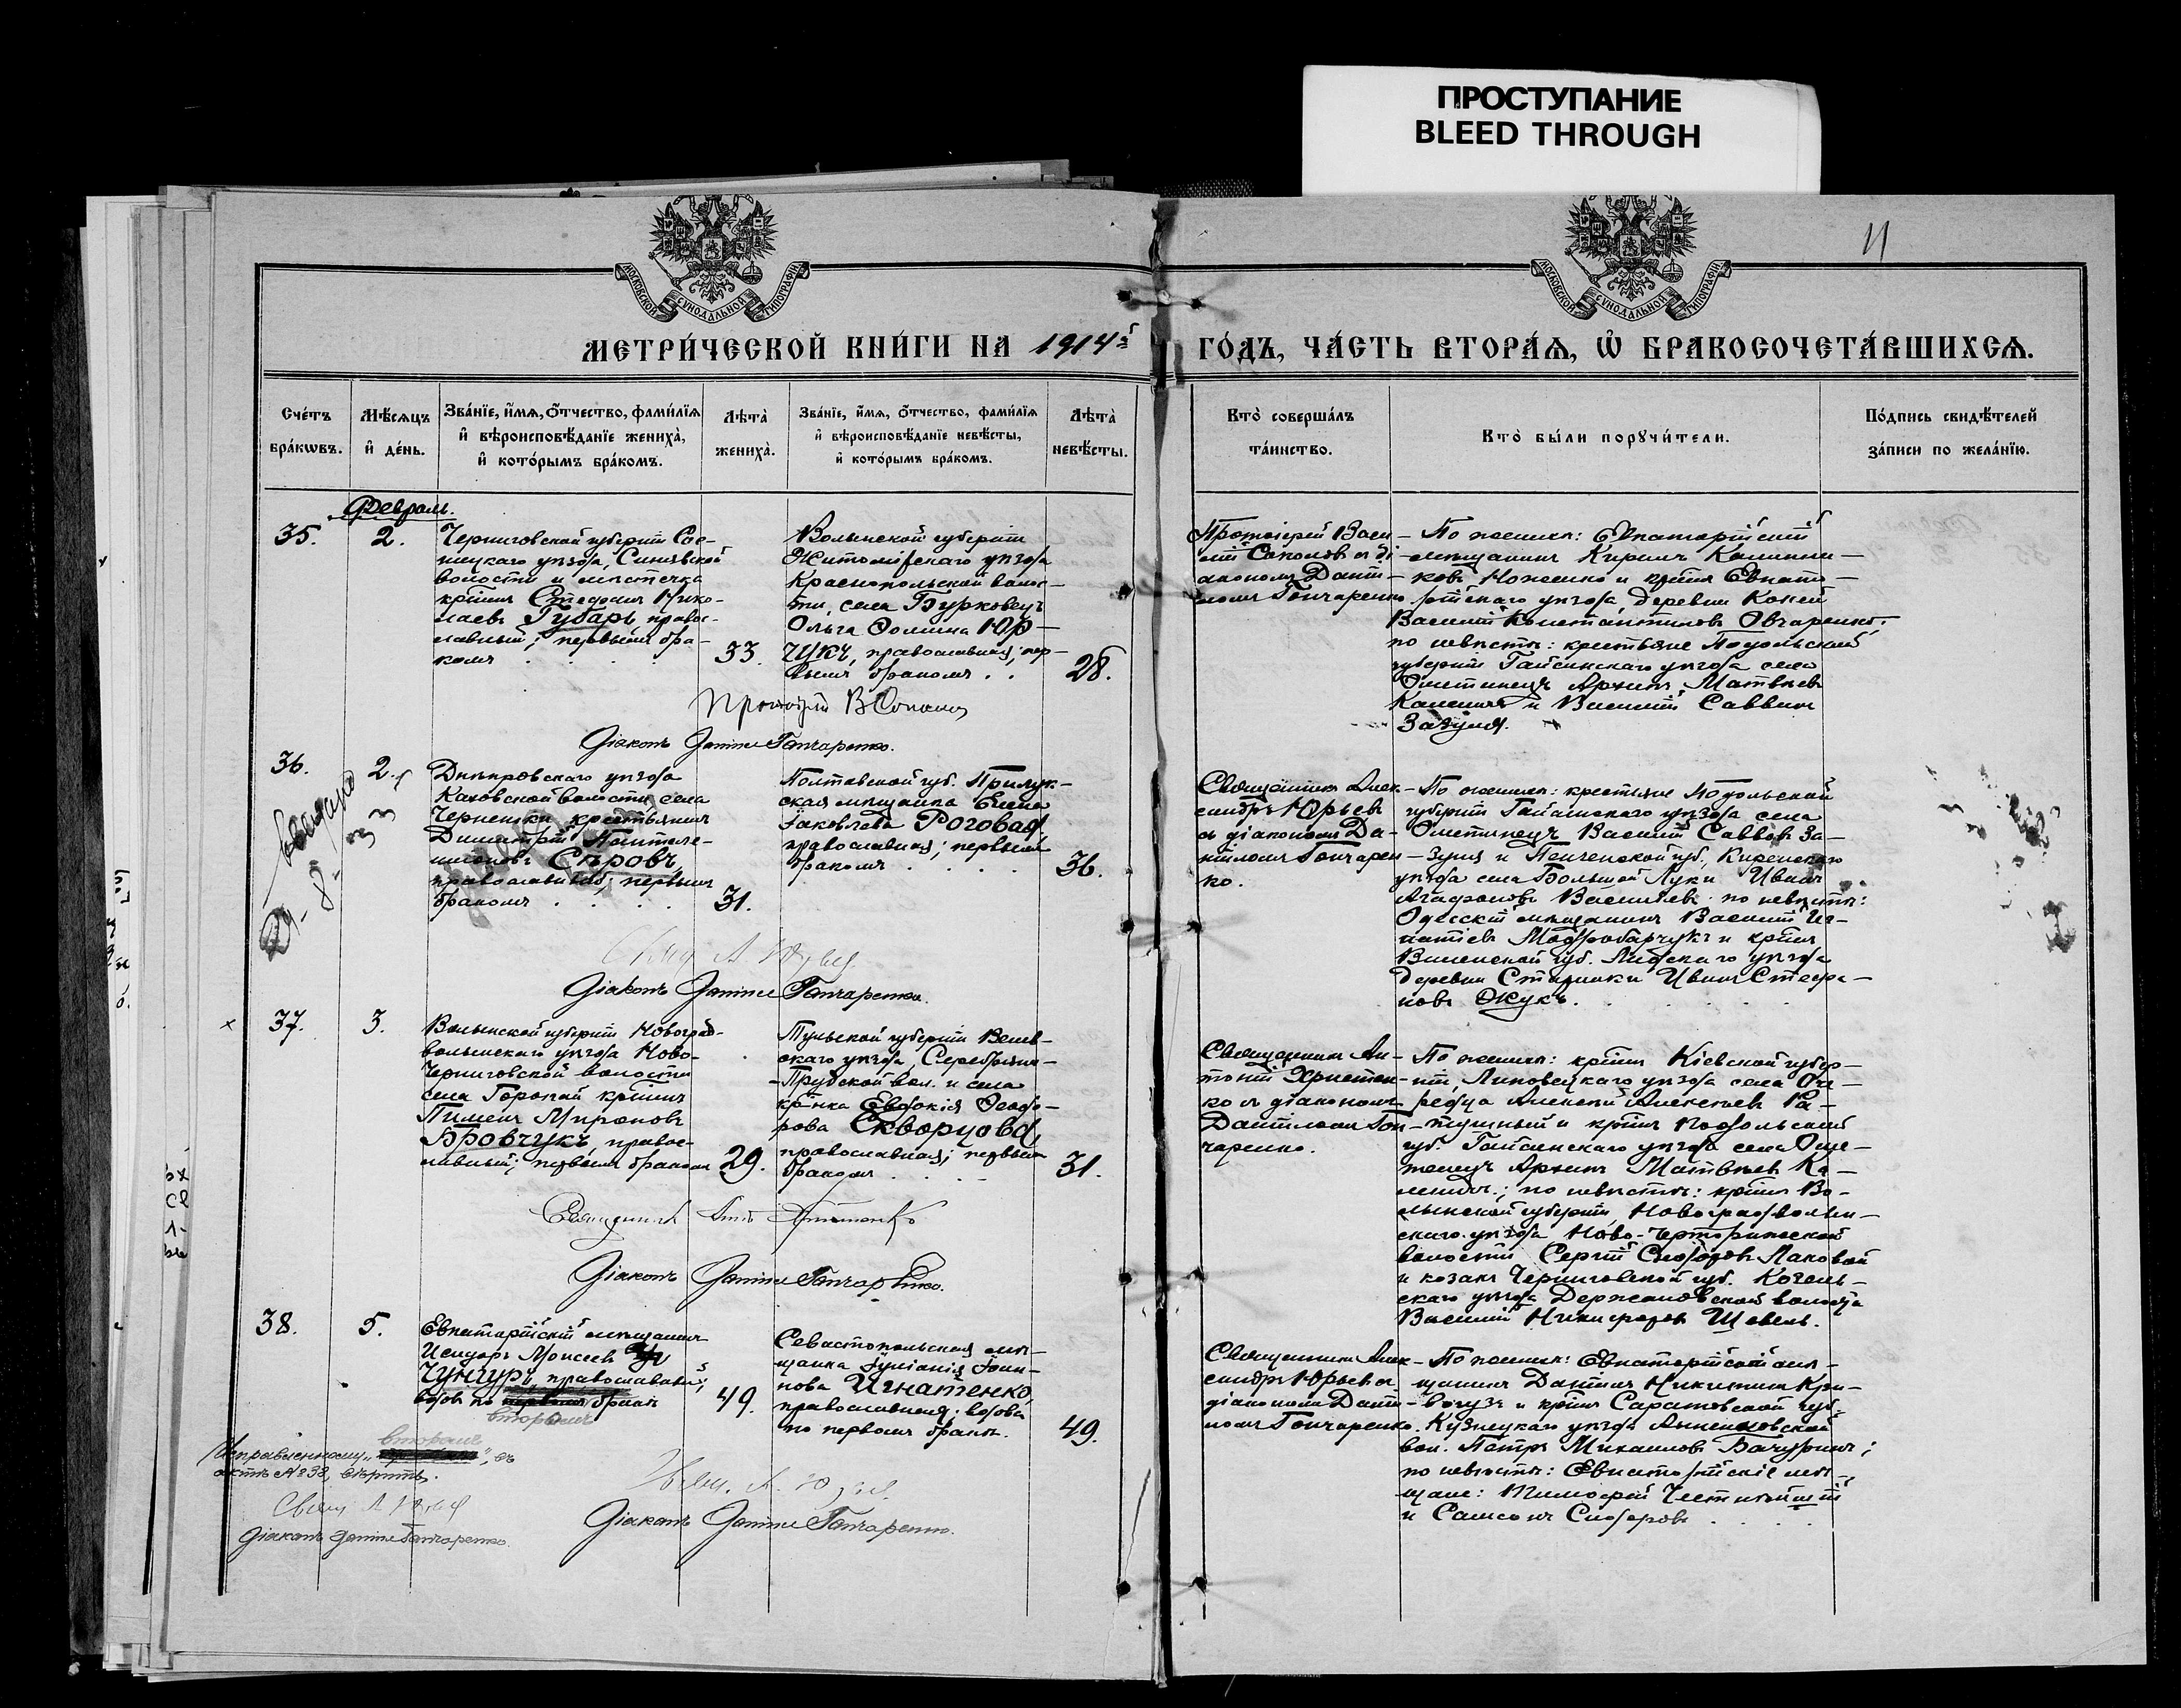 ПРОСТУПАНИЕ
BLEED THROUGH
11
МОСКОВСКОЙ СѴНОДАЛЬНОЙ ТИПОГРАФІИ
МОСКОВСКОЙ СѴНОДАЛЬНОЙ ТИПОГРАФІИ
МЕТРИ́ЧЕСКОЙ КНИ́ГИ НА 1914й
ГО́ДЪ, ЧА́СТЬ ВТОРА́Ѧ, Ѡ҆ БРАКОСОЧЕТА́ВШИХСѦ.
Сче́тъ бра́кѡвъ.
Мѣ́сѧцъ и҆ де́нь.
Зва́нїе, и҆́мѧ, ѻ҆́тчество, фами́лїѧ
и҆ вѣроисповѣ́данїе жениха̀,
и҆ кото́рымъ бра́комъ.
Лѣта̀ жениха̀.
Зва́нїе, и҆́мѧ, ѻ҆́тчество, фами́лїѧ
и҆ вѣроисповѣ́данїе невѣ́сты,
и҆ кото́рымъ бра́комъ.
Лѣта̀ невѣ́сты.
Кто̀ соверша́лъ
та́инство.
Кто̀ бы́ли порꙋчи́тели.
По́дпись свидѣ́телей
за́писи по жела́нїю.
Февраль.
35.
2.
Черниговской губерніи Сос-
ницкаго уѣзда, Синявской
волости и мѣстечка
кр̃нинъ Стефанъ Нико-
лаевъ Губарь, правос-
лавный; первымъ бра-
комъ
33.
Волынской губерніи
Житомірскаго уѣзда
Краснопольской волос-
ти, села Бурковецъ
Ольга Фомина Юр-
чукъ, православная; пер-
вымъ бракомъ
28.
Протоіерей Васи-
лій Соколовъ съ ді-
акономъ Дані-
иломъ Гончаренко
По женихѣ: Евпаторійскій
мѣщанинъ Кириллъ Каллини-
ковъ Ноженко и кр̃нинъ Евпато-
рійскаго уѣзда, деревни Коней
Василій Константиновъ Овчаренко;
по невѣстѣ: крестьяне Подольской
губерніи Гайсинскаго уѣзда села
Ометинецъ Архипъ Матвѣевъ
и Василій Саввинъ
Зазуля.
Протоіерей В Соколовъ
Діаконъ Даніилъ Гончаренко.
36.
2.
выдано
Днѣпровскаго уѣзда
Каховской волости, села
Чернянки крестьянинъ
Димитрій Пантеле-
имоновъ Сѣровъ
православный; первымъ
бракомъ
31.
Полтавской губ. Прилук-
ская мѣщанка Елена
Іаковлева Роговая,
православная; первымъ
бракомъ
36.
Священникъ Алек-
сандръ Юрьевъ
съ діакономъ Да-
ніиломъ Гончарен-
ко.
По женихѣ: крестьяне Подольской
губерніи Гайсинскаго уѣзда села
Ометинецъ Василій Саввовъ За-
зуля и Пензенской губ., Керенскаго
уѣзда села Большой Луки Иванъ
Агафоновъ Васильевъ; по невѣстѣ:
Одесскій мѣщанинъ Василій Иг-
натіевъ и кр̃нинъ
Виленской губ. Лидскаго уѣзда
деревни Старинки Иванъ Стефа-
новъ Жукъ.
Свящ А Юрьев
Діаконъ Даніилъ Гончаренко.
37.
3.
Волынской губерніи Новоград-
волынскаго уѣзда Ново-
Черниговской волости
села Горопай кр̃нинъ
Пименъ Мироновъ
Бровчукъ, правос-
лавный; первымъ бракомъ
29.
Тульской губерніи Венев-
скаго уѣзда, Серебряно-
Прудской вол. и села
кр̃нка Евдокія Ѳеодо-
рова Скворцова,
православная; первымъ
бракомъ
31.
Священникъ Ан-
тоній Христен-
ко съ діакономъ
Даніиломъ Гон-
чаренко.
По женихѣ: кр̃нинъ Кіевской губер-
ніи, Липовецкаго уѣзда села Оче-
ретна Алексій Алексѣевъ Ра-
тушный и кр̃нинъ Подольской
губ. Гайсинскаго уѣзда села Оме-
тинецъ Архипъ Матвѣевъ Ка-
; по невѣстѣ: кр̃нинъ Во-
лынской губерніи Новоградволын-
скаго уѣзда Ново-Черторійской
волости Сергій Сидоровъ Лановой
и козакъ Черниговской губ. Козель-
скаго уѣзда Держановской волости
Василій Никифоровъ Щавель.
Священникъ Ант Христенко
Діаконъ Даніилъ Гончаренко.
38.
5.
Евпаторійскій мѣщанинъ
Исидоръ Моисеевъ
Чунгуръ, православный;
вдовъ по бракѣ
вторымъ
49.
Севастопольская мѣ-
щанка Іуліанія Іоан-
нова Игнатенко,
православная; вдова
по первомъ бракѣ.
49.
Священникъ Алек-
сандръ Юрьевъ съ
діакономъ Дані-
иломъ Гончаренко.
По женихѣ: Евпаторійскій мѣ-
щанинъ Даніилъ Никитинъ Кри-
вогузъ и кр̃нинъ Саратовской губ.
Кузнецкаго уѣзда Анненковской
вол. Петръ Михаиловъ Бачуринъ;
по невѣстѣ: Евпаторійскіе мѣ-
щане: Тимофей
и Самсонъ Сидоровъ
Исправленному „вторымъ“, въ
актѣ № 38, вѣрить.
Свящ А Юрьев
Діаконъ Даніилъ Гончаренко.
Свящ. А. Юрьев.
Діаконъ Даніилъ Гончаренко.